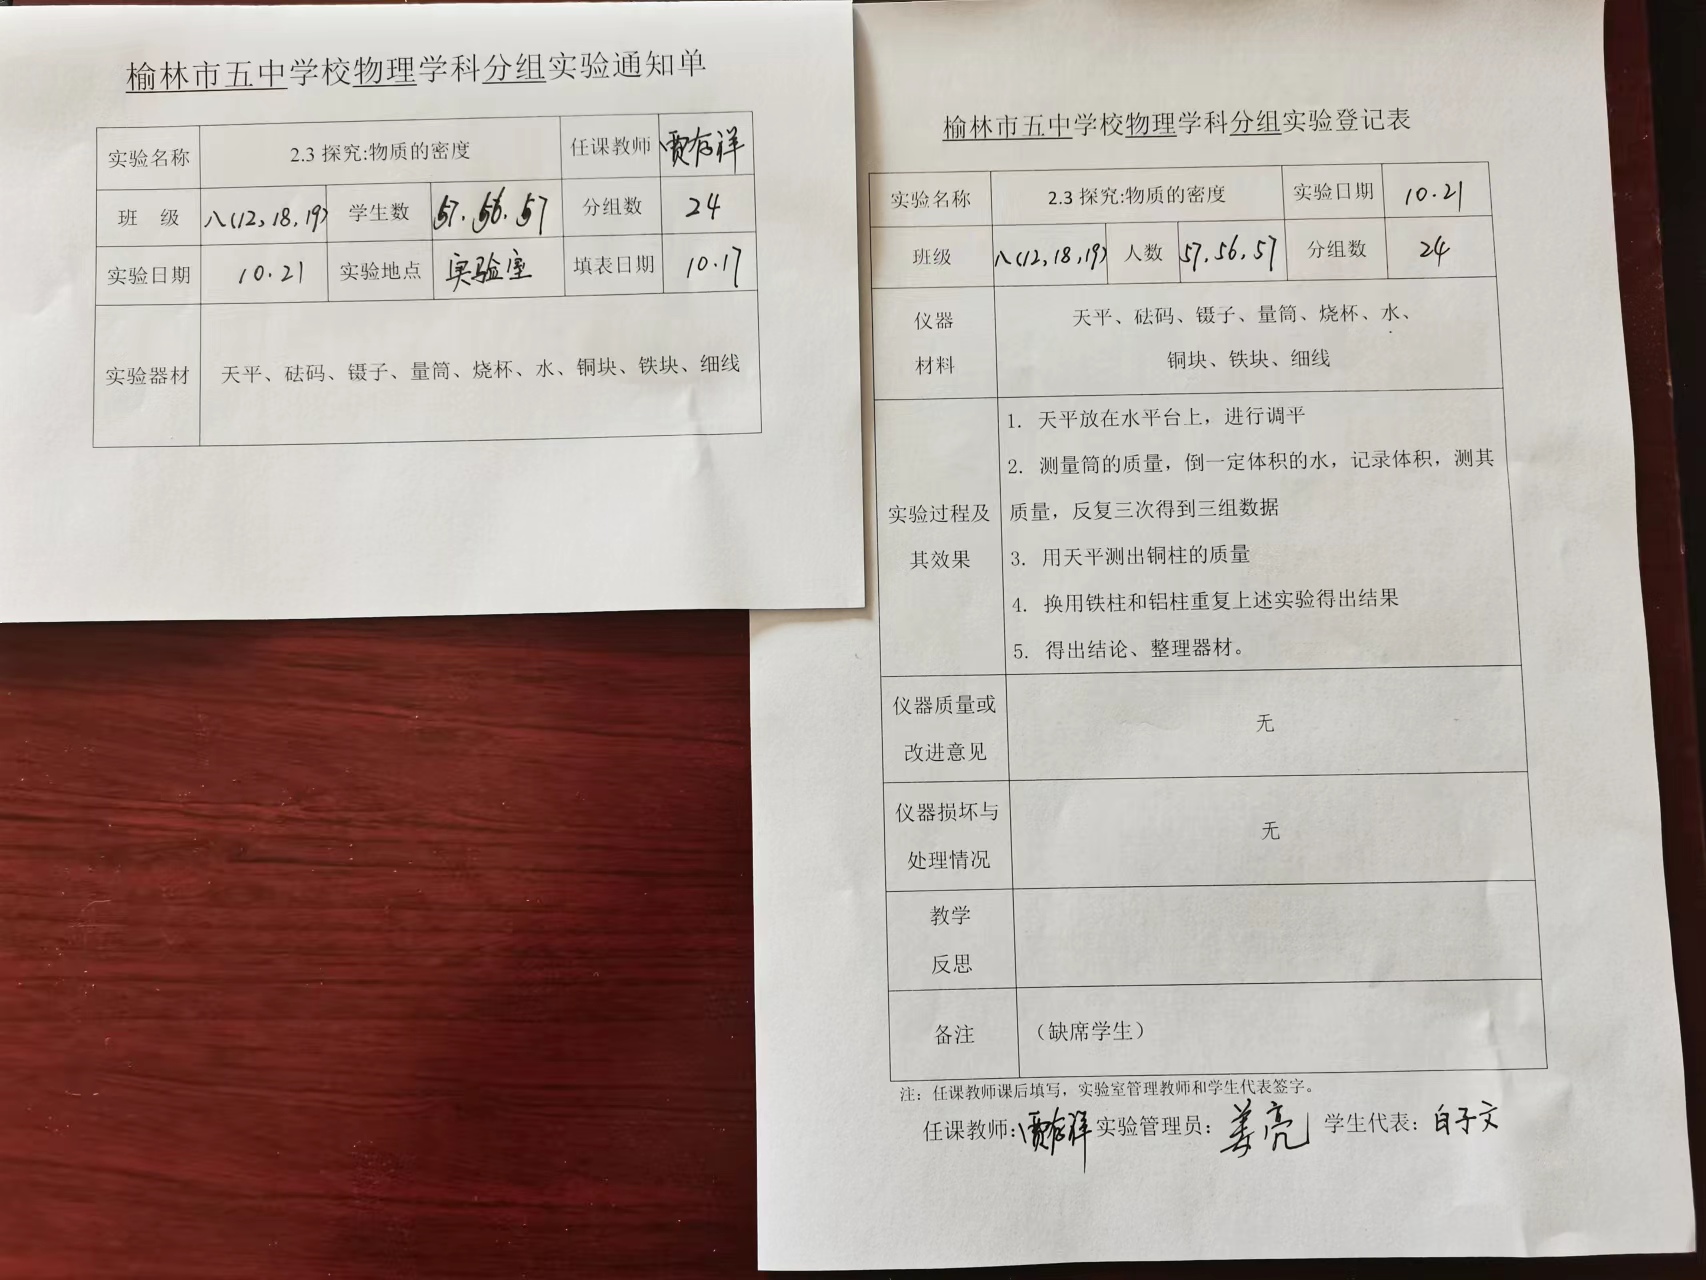 榆林市五中学校物理学科分组实验通知单
实验名称 2.3 探究:物质的密度 任课教师 贾存祥
班 级 八(12,18,19) 学生数 57.56.57 分组数 24
实验日期 10.21 实验地点 实验室 填表日期 10.17
实验器材 天平、砝码、镊子、量筒、烧杯、水、铜块、铁块、细线
榆林市五中学校物理学科分组实验登记表
实验名称 2.3 探究:物质的密度 实验日期 10.21
班级 八(12,18,19) 人数 57,56,57 分组数 24
仪器
材料
天平、砝码、镊子、量筒、烧杯、水、
铜块、铁块、细线
实验过程及
其效果
1. 天平放在水平台上，进行调平
2. 测量筒的质量，倒一定体积的水，记录体积，测其
质量，反复三次得到三组数据
3. 用天平测出铜柱的质量
4. 换用铁柱和铝柱重复上述实验得出结果
5. 得出结论、整理器材。
仪器质量或
改进意见
无
仪器损坏与
处理情况
无
教学
反思
备注 （缺席学生）
注：任课教师课后填写，实验室管理教师和学生代表签字。
任课教师: 贾存祥 实验管理员: 姜亮 学生代表: 白子文